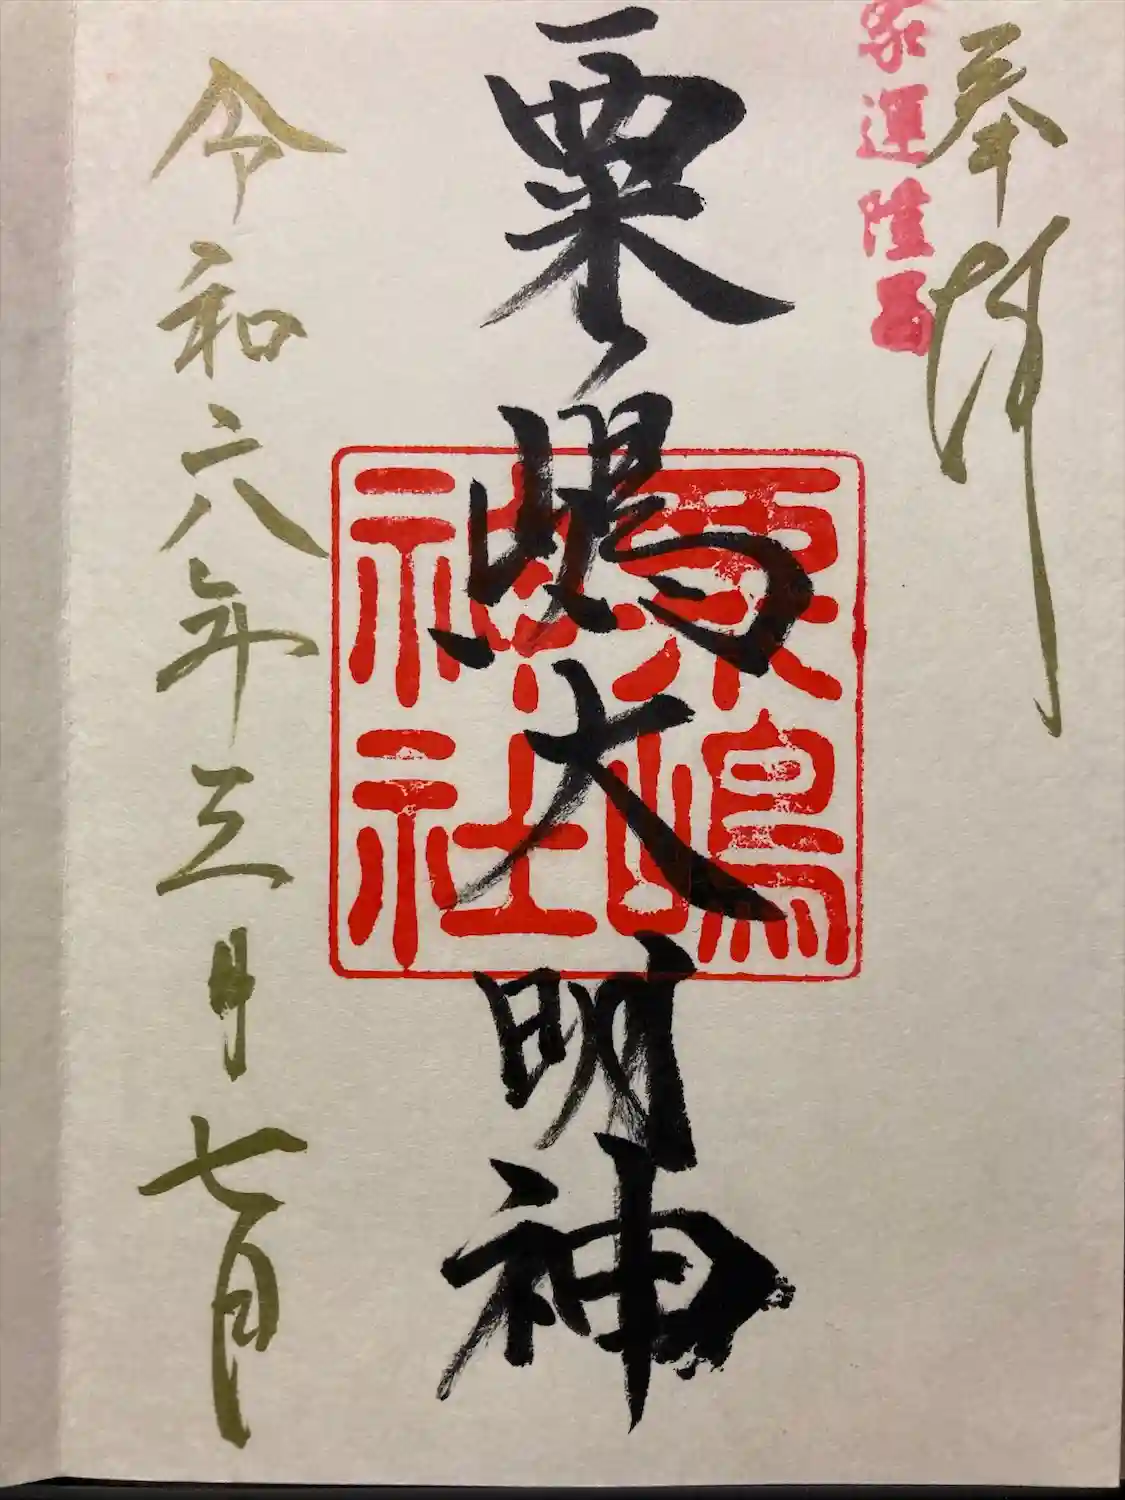 奉拝
家運隆昌
粟嶋大明神
粟嶋
神社
令和六年三月七日